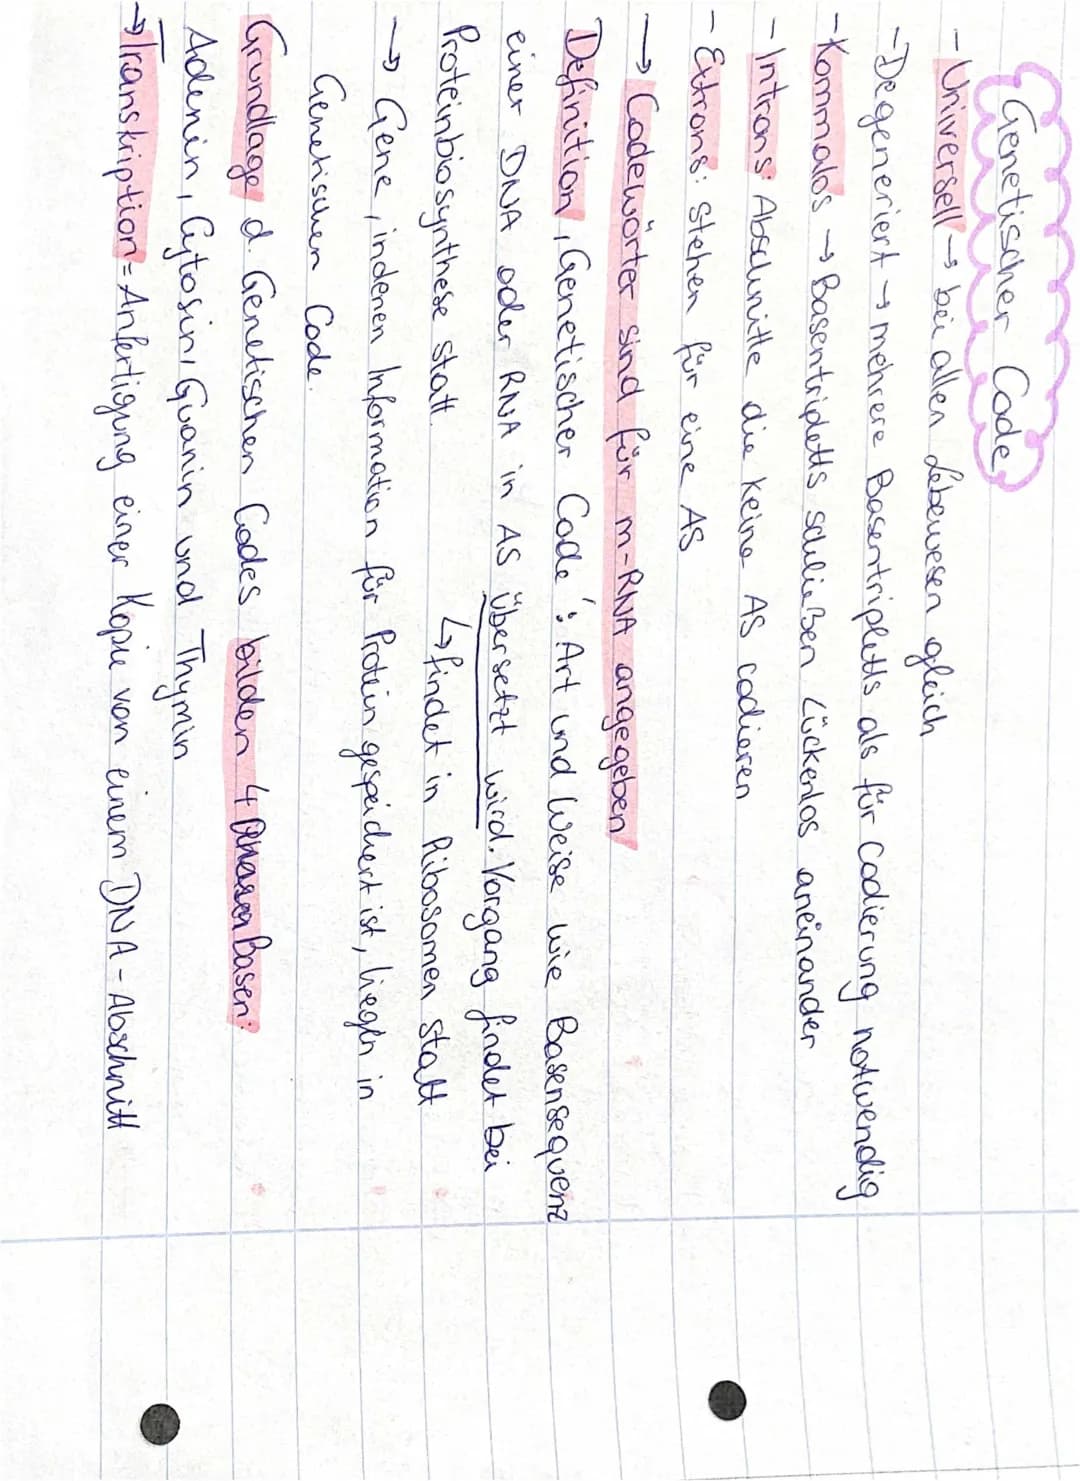 Genetischer Code
- Universell → bei allen Lebewesen gleich
- Degeneriert → mehrere Basentripletts als für Codierung notwendig
- Kommalos → Basentripletts schließen Lückenlos aneinander
- Introns: Abschnitte die keine AS codieren
- Extrons: stehen für eine AS
→ Codewörter sind für m-RNA angegeben
Definition ,Genetischer Code': Art und Weise wie Basensequenz
einer DNA oder RNA in AS übersetzt wird. Vorgang findet bei
Proteinbiosynthese statt. ↳ findet in Ribosomen statt
→ Gene, indenen Information für Protein gespeichert ist, liegen in
Genetischen Code.
Grundlage d. Genetischen Codes bilden 4 Basen:
Adenin, Cytosin, Guanin und Thymin
→ Transkription = Anfertigung einer Kopie von einem DNA-Abschnitt